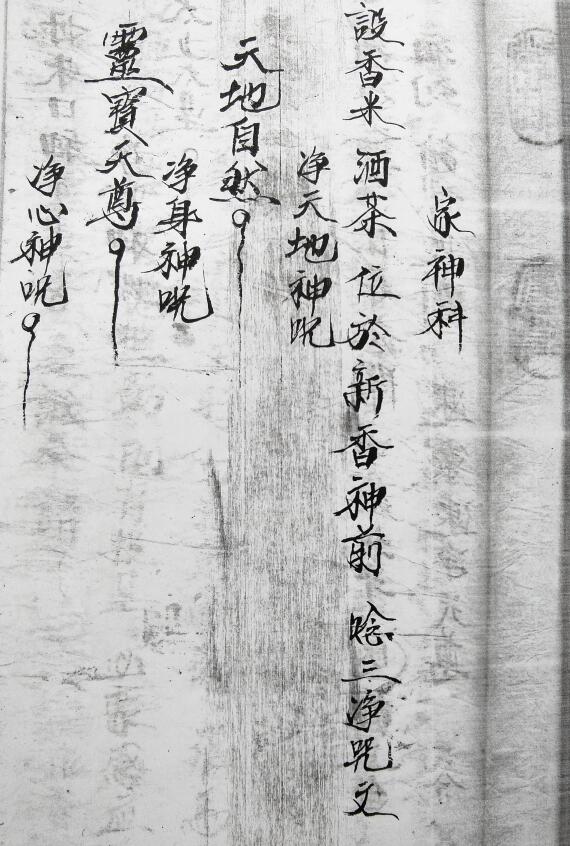 家神科
設香米酒茶位於新香神前唸三净咒文
净天地神呪
天地自然
净身神呪
靈寳天尊
净心神呪